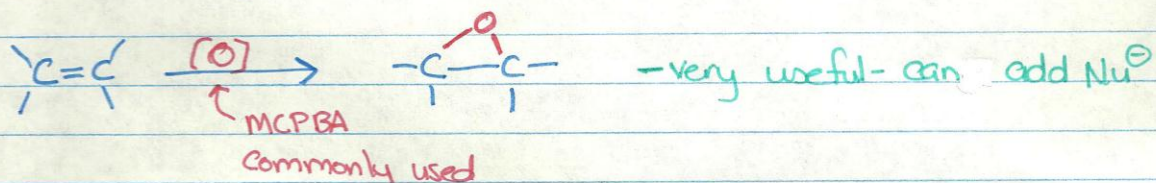 O
C=C [O] -C-C- -very useful- can add Nu⊖
MCPBA
commonly used